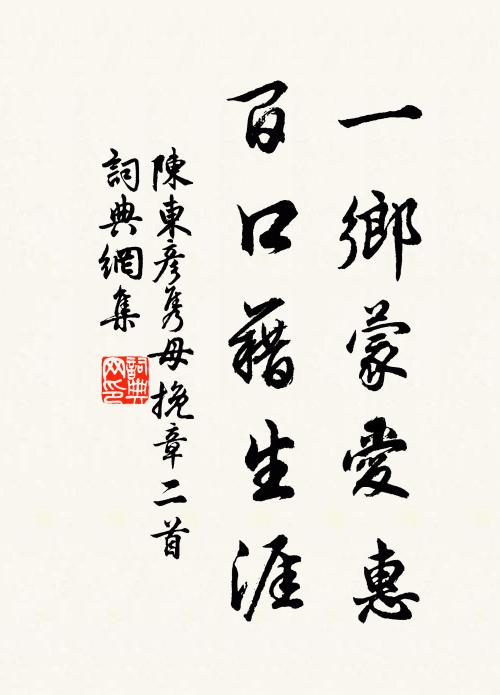 一鄉蒙愛惠
百口藉生涯
陳東彥秀母挽章二首
詞典網集
詞典网印